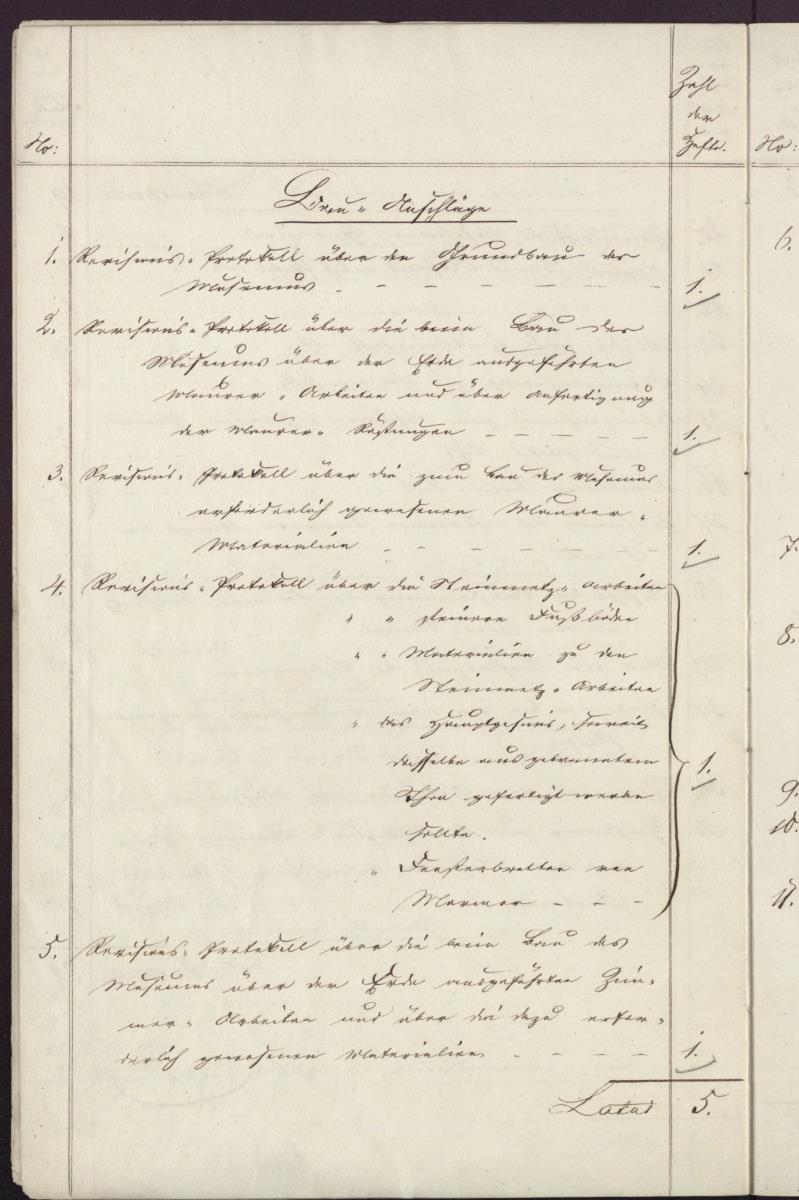 Zahl
der
No: Hefte. No:
Bau-Anschläge
1. Revisions-Protokoll über den Grundbau des
Museums. - - - - - - - 1.
2. Revisions-Protokoll über die beim Bau des
Museums über der Erde ausgeführten
Maurer-Arbeiten und über Anfertigung
der Maurer-Rüstungen - - - - - 1.
3. Revisions-Protokoll über die zum Bau des Museums
erforderlich gewesenen Maurer-
Materialien - - - - - - - 1.
4. Revisions-Protokoll über die Steinmetz-Arbeiten
" " steinere Fußböden
" " Materialien zu den
Steinmetz-Arbeiten
" das Hauptgesims, soweit
dasselbe aus gebranntem
Thon gefertigt werde 1.
sollte.
" Fensterbretter von
Marmor - - -
5. Revisions-Protokoll über die beim Bau des
Museums über der Erde ausgeführten Zim-
mer-Arbeiten und über die dazu erfor-
derlich gewesenen Materialien - - - - 1.
Latus 5.
6.
7.
8.
9.
10.
11.